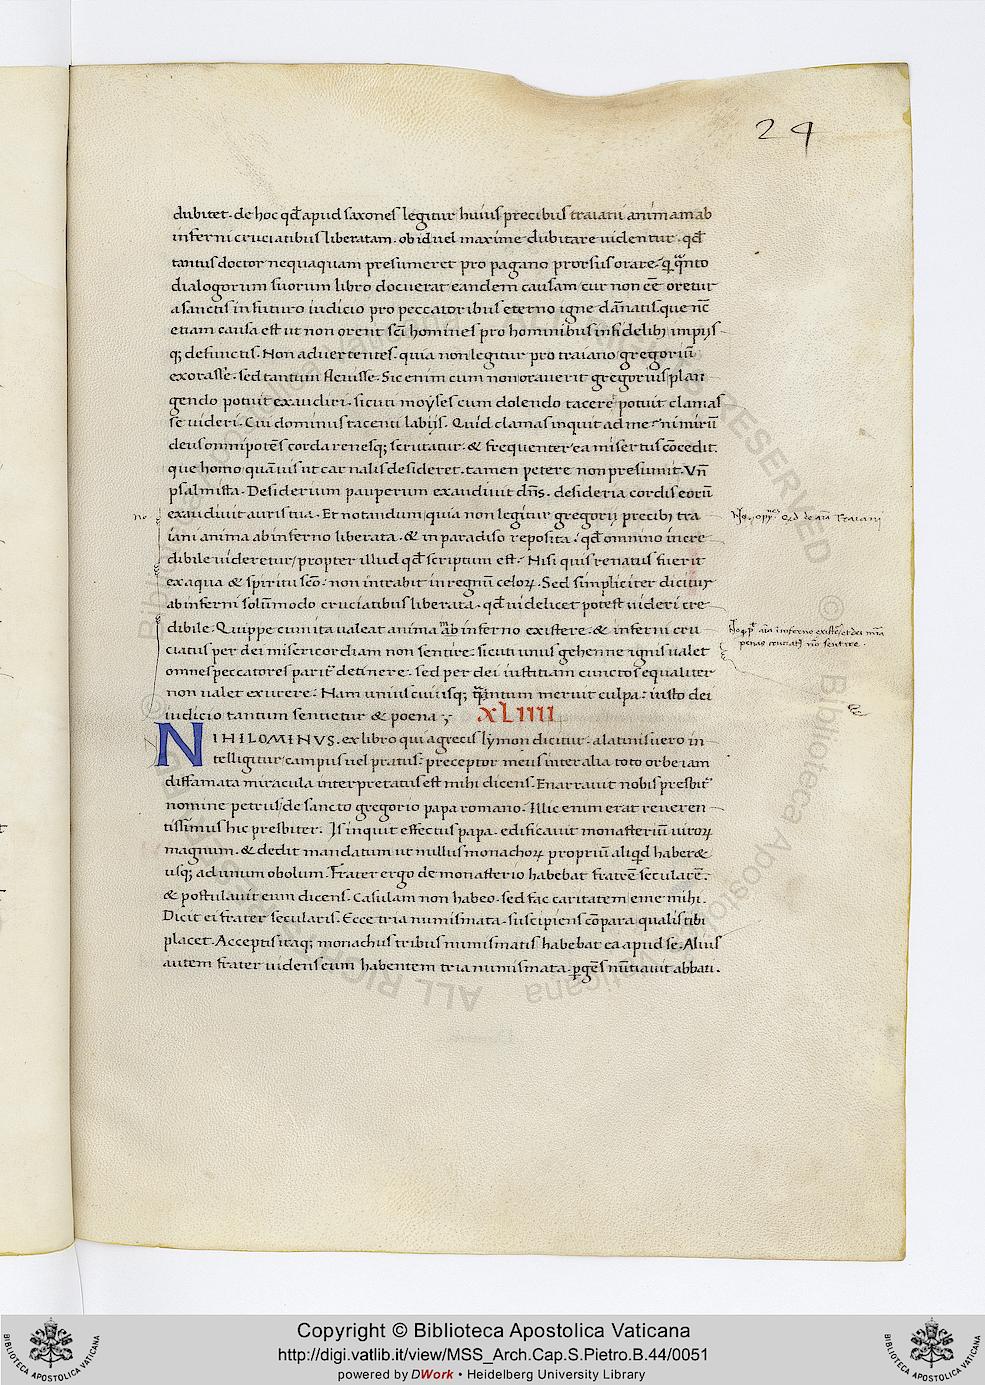 24
dubitet. de hoc qđ apud saxones legitur huius precibus traiani animam ab
inferni cruciatibus liberatam. ob id uel maxime dubitare uidentur. qđ
tantus doctor nequaquam presumeret pro pagano prorsus orare. q̃ quarto
dialogorum suorum libro docuerat eandem causam cur non ēē oretur
a sanctis in futuro iudicio pro peccatoribus eterno igne dānatis. que nc̄
etiam causa est ut non orent sc̄i homines pro hominibus infidelibȝ impijs
q; defunctis. Non aduertentes. quia non legitur pro traiano gregoriū
exorasse. sed tantum fleuisse. Sic enim cum non orauerit gregorius plan
gendo potuit exaudiri. sicuti moyses cum dolendo tacere potuit clamas
se uideri. Cui dominus tacenti labijs. Quid clamas inquit ad me. nimirū
deus omnipotēs corda renesq; scrutatur. & frequenter ea misertus cōcedit.
que homo quāuis ut carnalis desideret. tamen petere non presumit. Vn̄
psalmista. Desiderium pauperum exaudiuit dn̄s. desideria cordis eorū
exaudiuit auris tua. Et notandum quia non legitur gregorij precibȝ tra
iani anima ab inferno liberata. & in paradiso reposita. qđ omnino incre
dibile uideretur propter illud qđ scriptum est. Nisi quis renatus fuerit
ex aqua & spiritu sc̄o. non intrabit in regnū celoꝝ. Sed simpliciter dicitur
ab inferni solūmodo cruciatibus liberata. qđ uidelicet potest uideri cre
dibile. Quippe cum ita ualeat anima ab inferno existere. & inferni cru
ciatus per dei misericordiam non sentire. sicuti unus gehenne ignis ualet
omnes peccatores parit̄ detinere. sed per dei iustitiam cunctos equaliter
non ualet exurere. Nam uniuscuiusq; quantum meruit culpa. iusto dei
iudicio tantum sentietur & poena.
XLIIII
NIHILOMINVS. ex libro qui a grecis lymon dicitur. a latinis uero in
telligitur campus uel pratus. preceptor meus inter alia toto orbe iam
diffamata miracula interpretatus est mihi dicens. Enarrauit nobis presbit̄
nomine petrus de sancto gregorio papa romano. Illic enim erat reueren
tissimus hic presbiter. Is inquit effectus papa. edificauit monasteriū uiroꝝ
magnum. & dedit mandatum ut nullus monachoꝝ propriū aliqđ haber&
usq; ad unum obolum. Frater ergo de monasterio habebat fratrē secularē.
& postulauit eum dicens. Casulam non habeo. sed fac caritatem eme mihi.
Dicit ei frater secularis. Ecce tria numismata. suscipiens cōpara qualis tibi
placet. Acceptis itaq; monachus tribus numismatis habebat ea apud se. Alius
autem frater uidens eum habentem tria numismata. ꝑgēs nūtiauit abbati.
Copyright © Biblioteca Apostolica Vaticana
http://digi.vatlib.it/view/MSS_Arch.Cap.S.Pietro.B.44/0051
powered by DWork • Heidelberg University Library